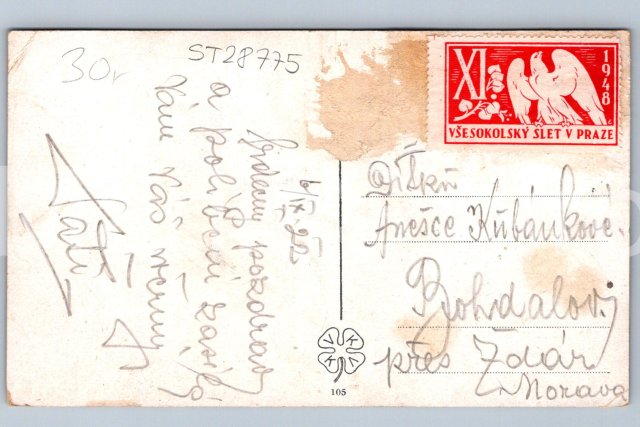 30,-
ST28775
XI.
1948
VŠESOKOLSKÝ SLET V PRAZE
6/IX. 22
Srdečný pozdrav
a políbení zasílá
Vám Váš věrný
Dítků
Anešce Kubánkové.
Bohdalov
přes Ždár
Morava
105